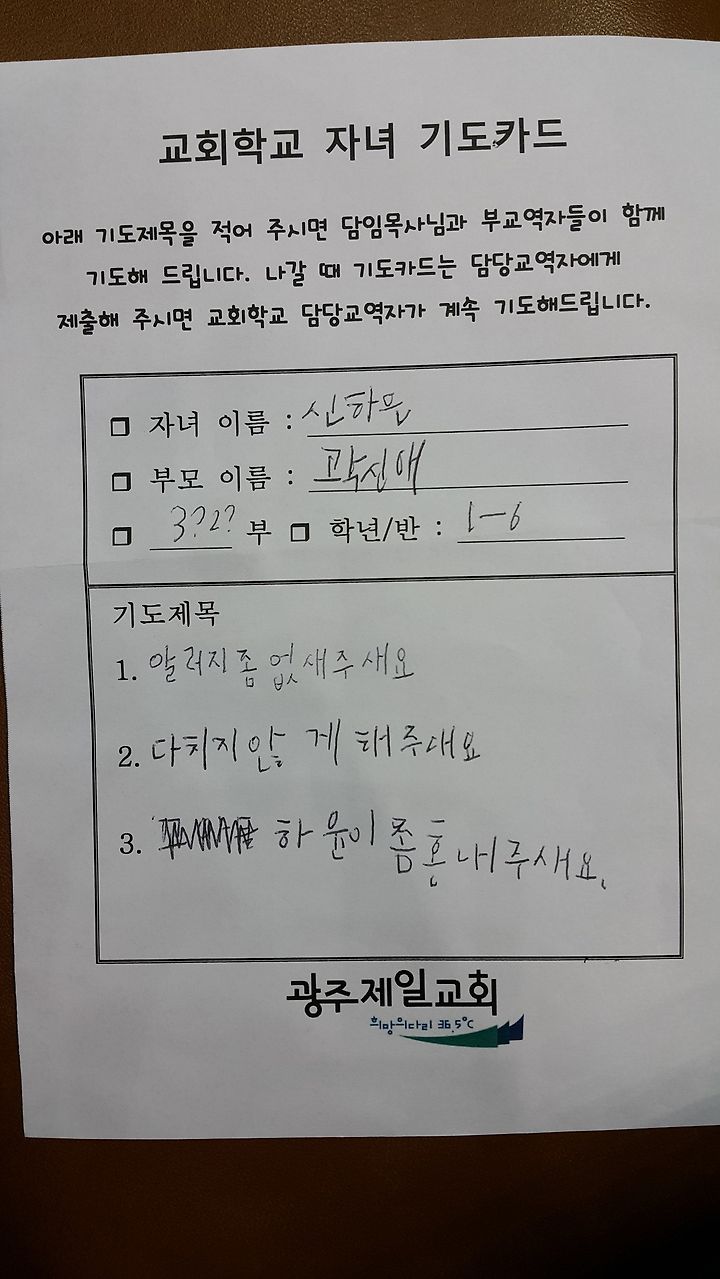 교회학교 자녀 기도카드
아래 기도제목을 적어 주시면 담임목사님과 부교역자들이 함께
기도해 드립니다. 나갈 때 기도카드는 담당교역자에게
제출해 주시면 교회학교 담당교역자가 계속 기도해드립니다.
□ 자녀 이름 : 신하은
□ 부모 이름 : 곽신애
□ 3?2? 부 □ 학년/반 : 1-6
기도제목
1. 알러지좀없새주새요
2. 다치지안게 해주새요
3. 하윤이좀혼내주새요.
광주제일교회
희망의다리 36.5℃